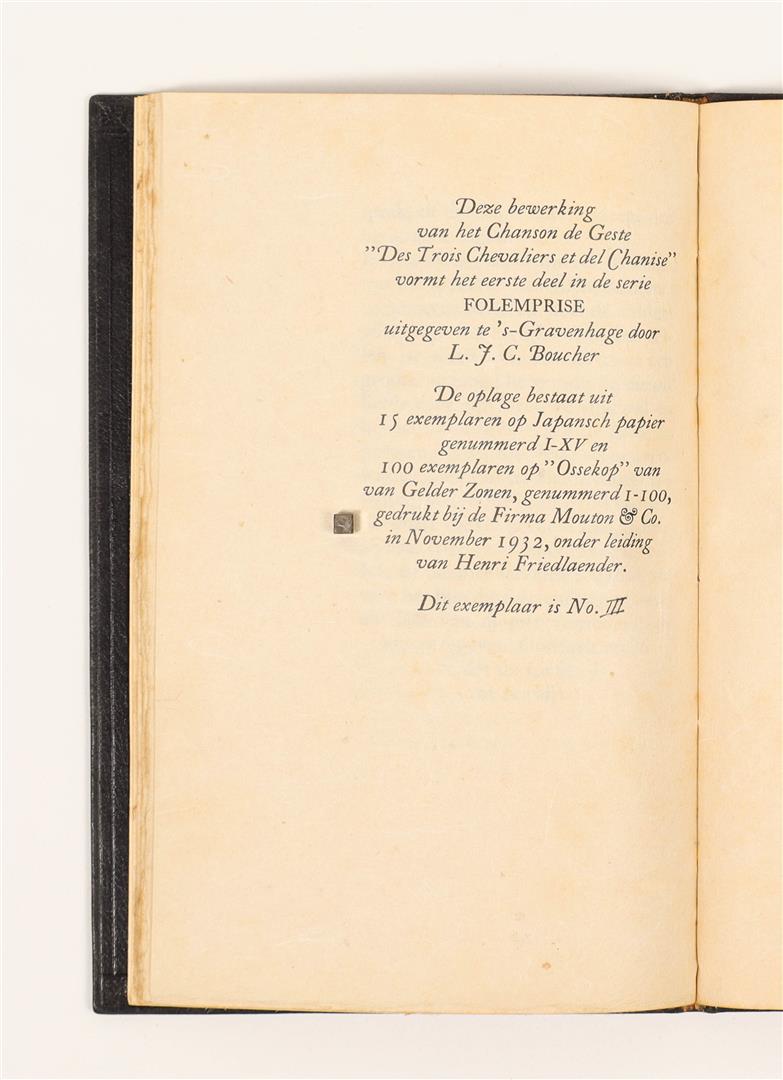 Deze bewerking
van het Chanson de Geste
"Des Trois Chevaliers et del Chanise"
vormt het eerste deel in de serie
FOLEMPRISE
uitgegeven te 's-Gravenhage door
L. J. C. Boucher
De oplage bestaat uit
15 exemplaren op Japansch papier
genummerd I-XV en
100 exemplaren op "Ossekop" van
van Gelder Zonen, genummerd 1-100,
gedrukt bij de Firma Mouton & Co.
in November 1932, onder leiding
van Henri Friedlaender.
Dit exemplaar is No. III